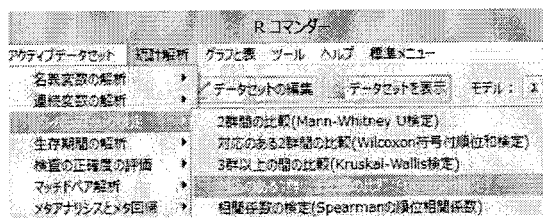 R コマンダー
アクティブデータセット 統計解析 グラフと表 ツール ヘルプ 標準メニュー
名義変数の解析
連続変数の解析
生存期間の解析
検査の正確度の評価
マッチドペア解析
メタアナリシスとメタ回帰
データセットの編集 データセットを表示 モデル:
2群間の比較(Mann-Whitney U検定)
対応のある2群間の比較(Wilcoxon符号付順位和検定)
3群以上の間の比較(Kruskal-Wallis検定)
相関係数の検定(Spearmanの順位相関係数)